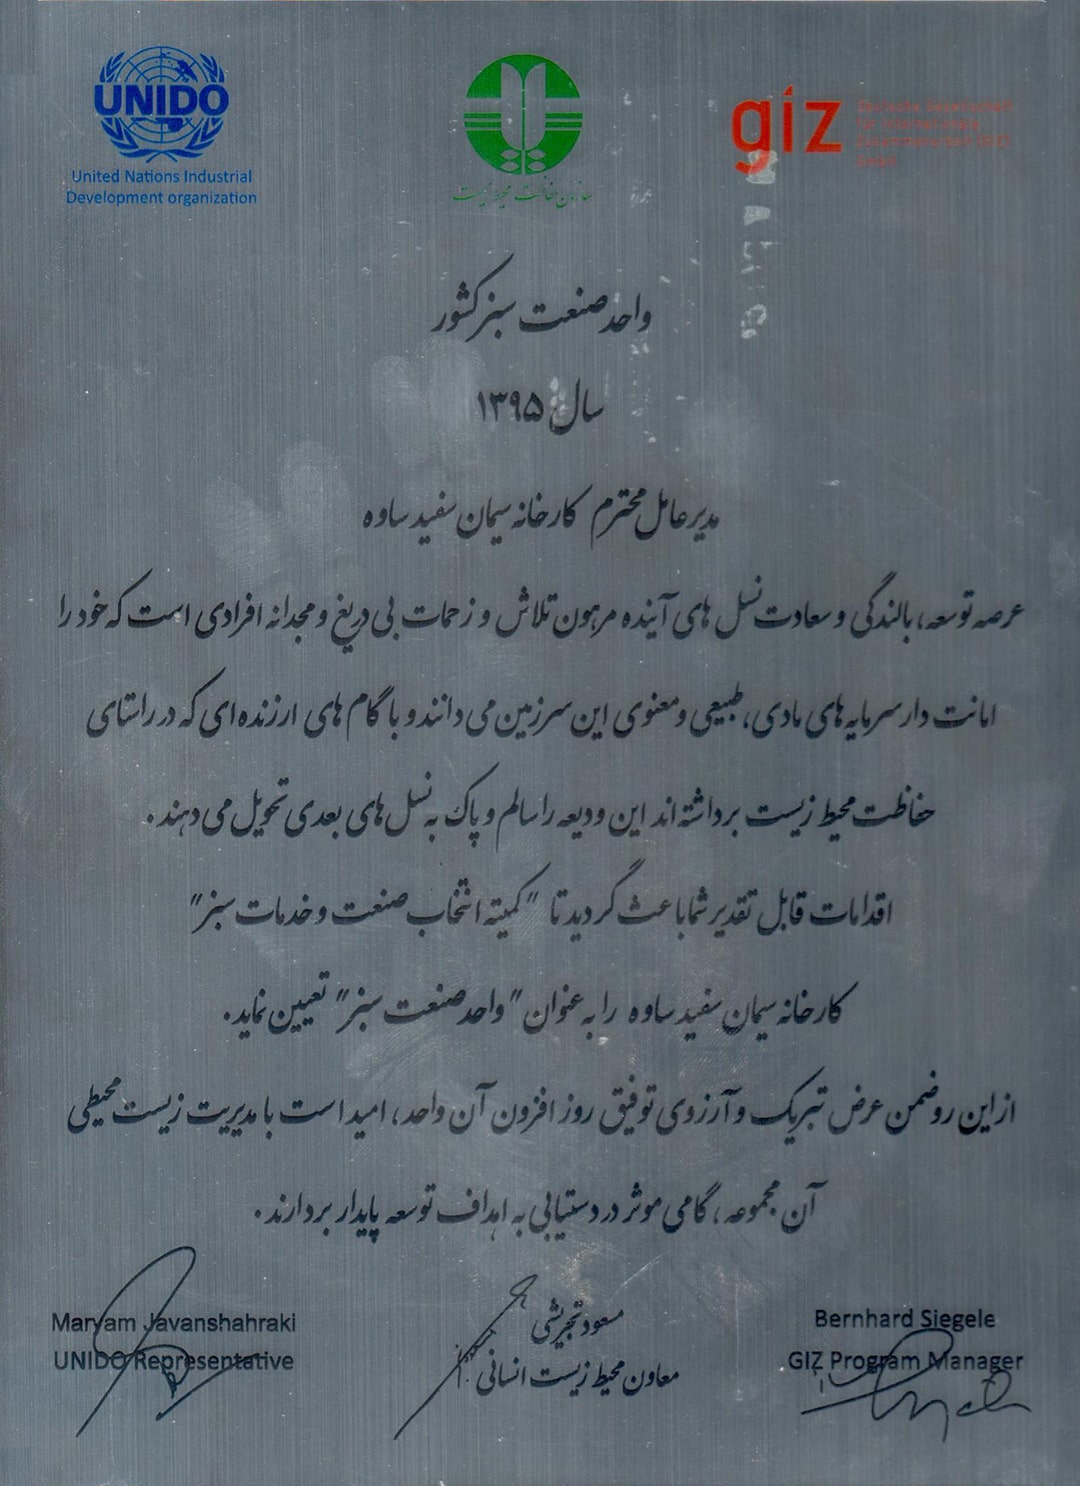 UNIDO
United Nations Industrial
Development organization
سازمان حفاظت محیط زیست
giz
Deutsche Gesellschaft
für Internationale
Zusammenarbeit (GIZ)
GmbH
واحد صنعت سبز کشور
سال ۱۳۹۵
مدیر عامل محترم کارخانه سیمان سفید ساوه
عرصه توسعه، بالندگی و سعادت نسل های آینده مرهون تلاش و زحمات بی دریغ و مجدانه افرادی است که خود را
امانت دار سرمایه های مادی، طبیعی و معنوی این سرزمین می دانند و با گام های ارزنده ای که در راستای
حفاظت محیط زیست برداشته اند این ودیعه را سالم و پاک به نسل های بعدی تحویل می دهند.
اقدامات قابل تقدیر شما باعث گردید تا "کمیته انتخاب صنعت و خدمات سبز"
کارخانه سیمان سفید ساوه را به عنوان "واحد صنعت سبز" تعیین نماید.
از این رو ضمن عرض تبریک و آرزوی توفیق روز افزون آن واحد، امید است با مدیریت زیست محیطی
آن مجموعه، گامی موثر در دستیابی به اهداف توسعه پایدار بردارند.
Maryam Javanshahraki
UNIDO Representative
مسعود تجریشی
معاون محیط زیست انسانی
Bernhard Siegele
GIZ Program Manager